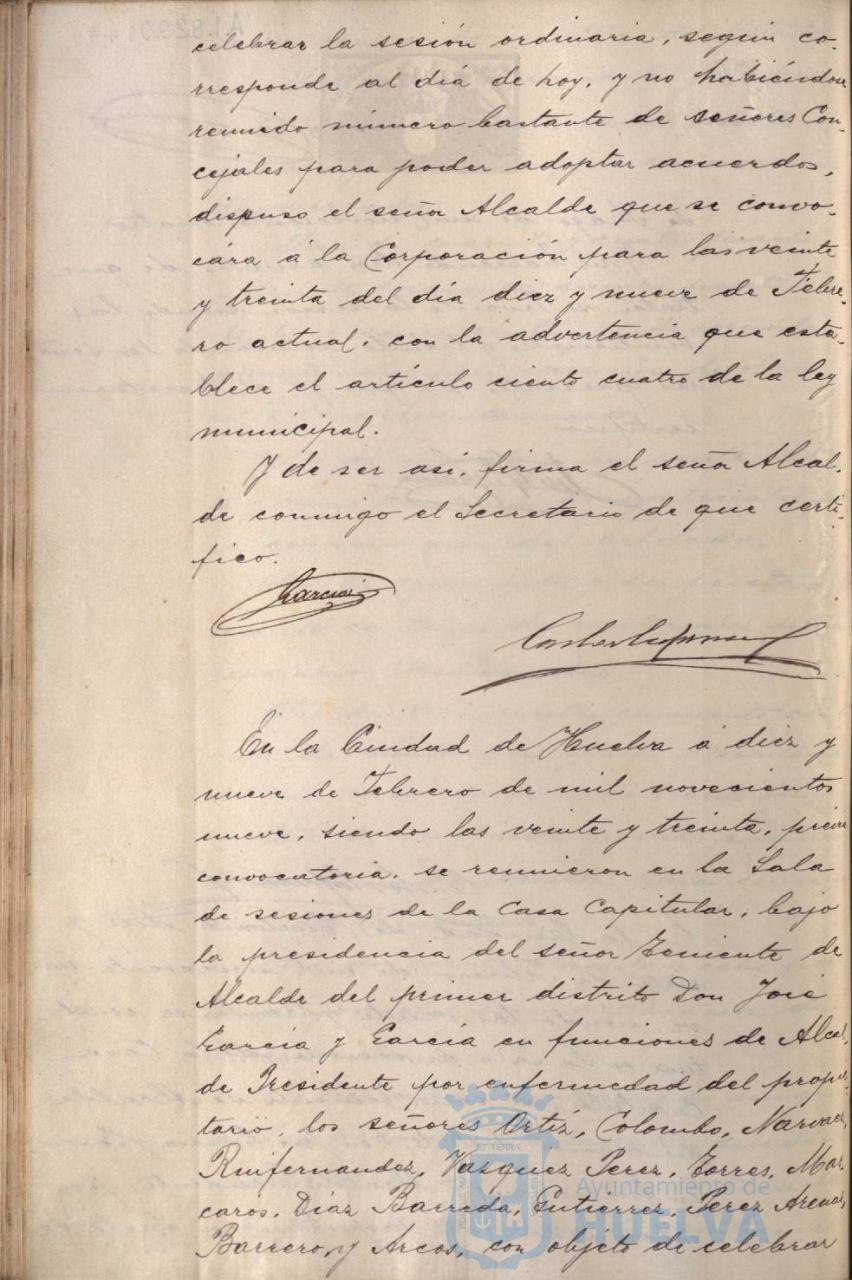 celebrar la sesión ordinaria, según co-
rresponde al día de hoy, y no habiéndose
reunido número bastante de señores Con-
cejales para poder adoptar acuerdos,
dispuso el señor Alcalde que se convo-
cára á la Corporación para las veinte
y treinta del día diez y nueve de Febre-
ro actual, con la advertencia que esta-
blece el artículo ciento cuatro de la ley
municipal.
Y de ser así, firma el señor Alcal-
de conmigo el Secretario de que certi-
fico.
García
En la Ciudad de Huelva á diez y
nueve de Febrero de mil novecientos
nueve, siendo las veinte y treinta, previa
convocatoria, se reunieron en la Sala
de sesiones de la Casa Capitular, bajo
la presidencia del señor Teniente de
Alcalde del primer distrito Don José
García y García en funciones de Alcal-
de Presidente por enfermedad del propie-
tario, los señores Ortíz, Colombo, Narvaez,
Ruifernandez, Vazquez Perez, Torres, Mar-
caros, Díaz Barreda, Gutierrez, Perez Arenas,
Barrero, y Arcos, con objeto de celebrar
Ayuntamiento de
HUELVA